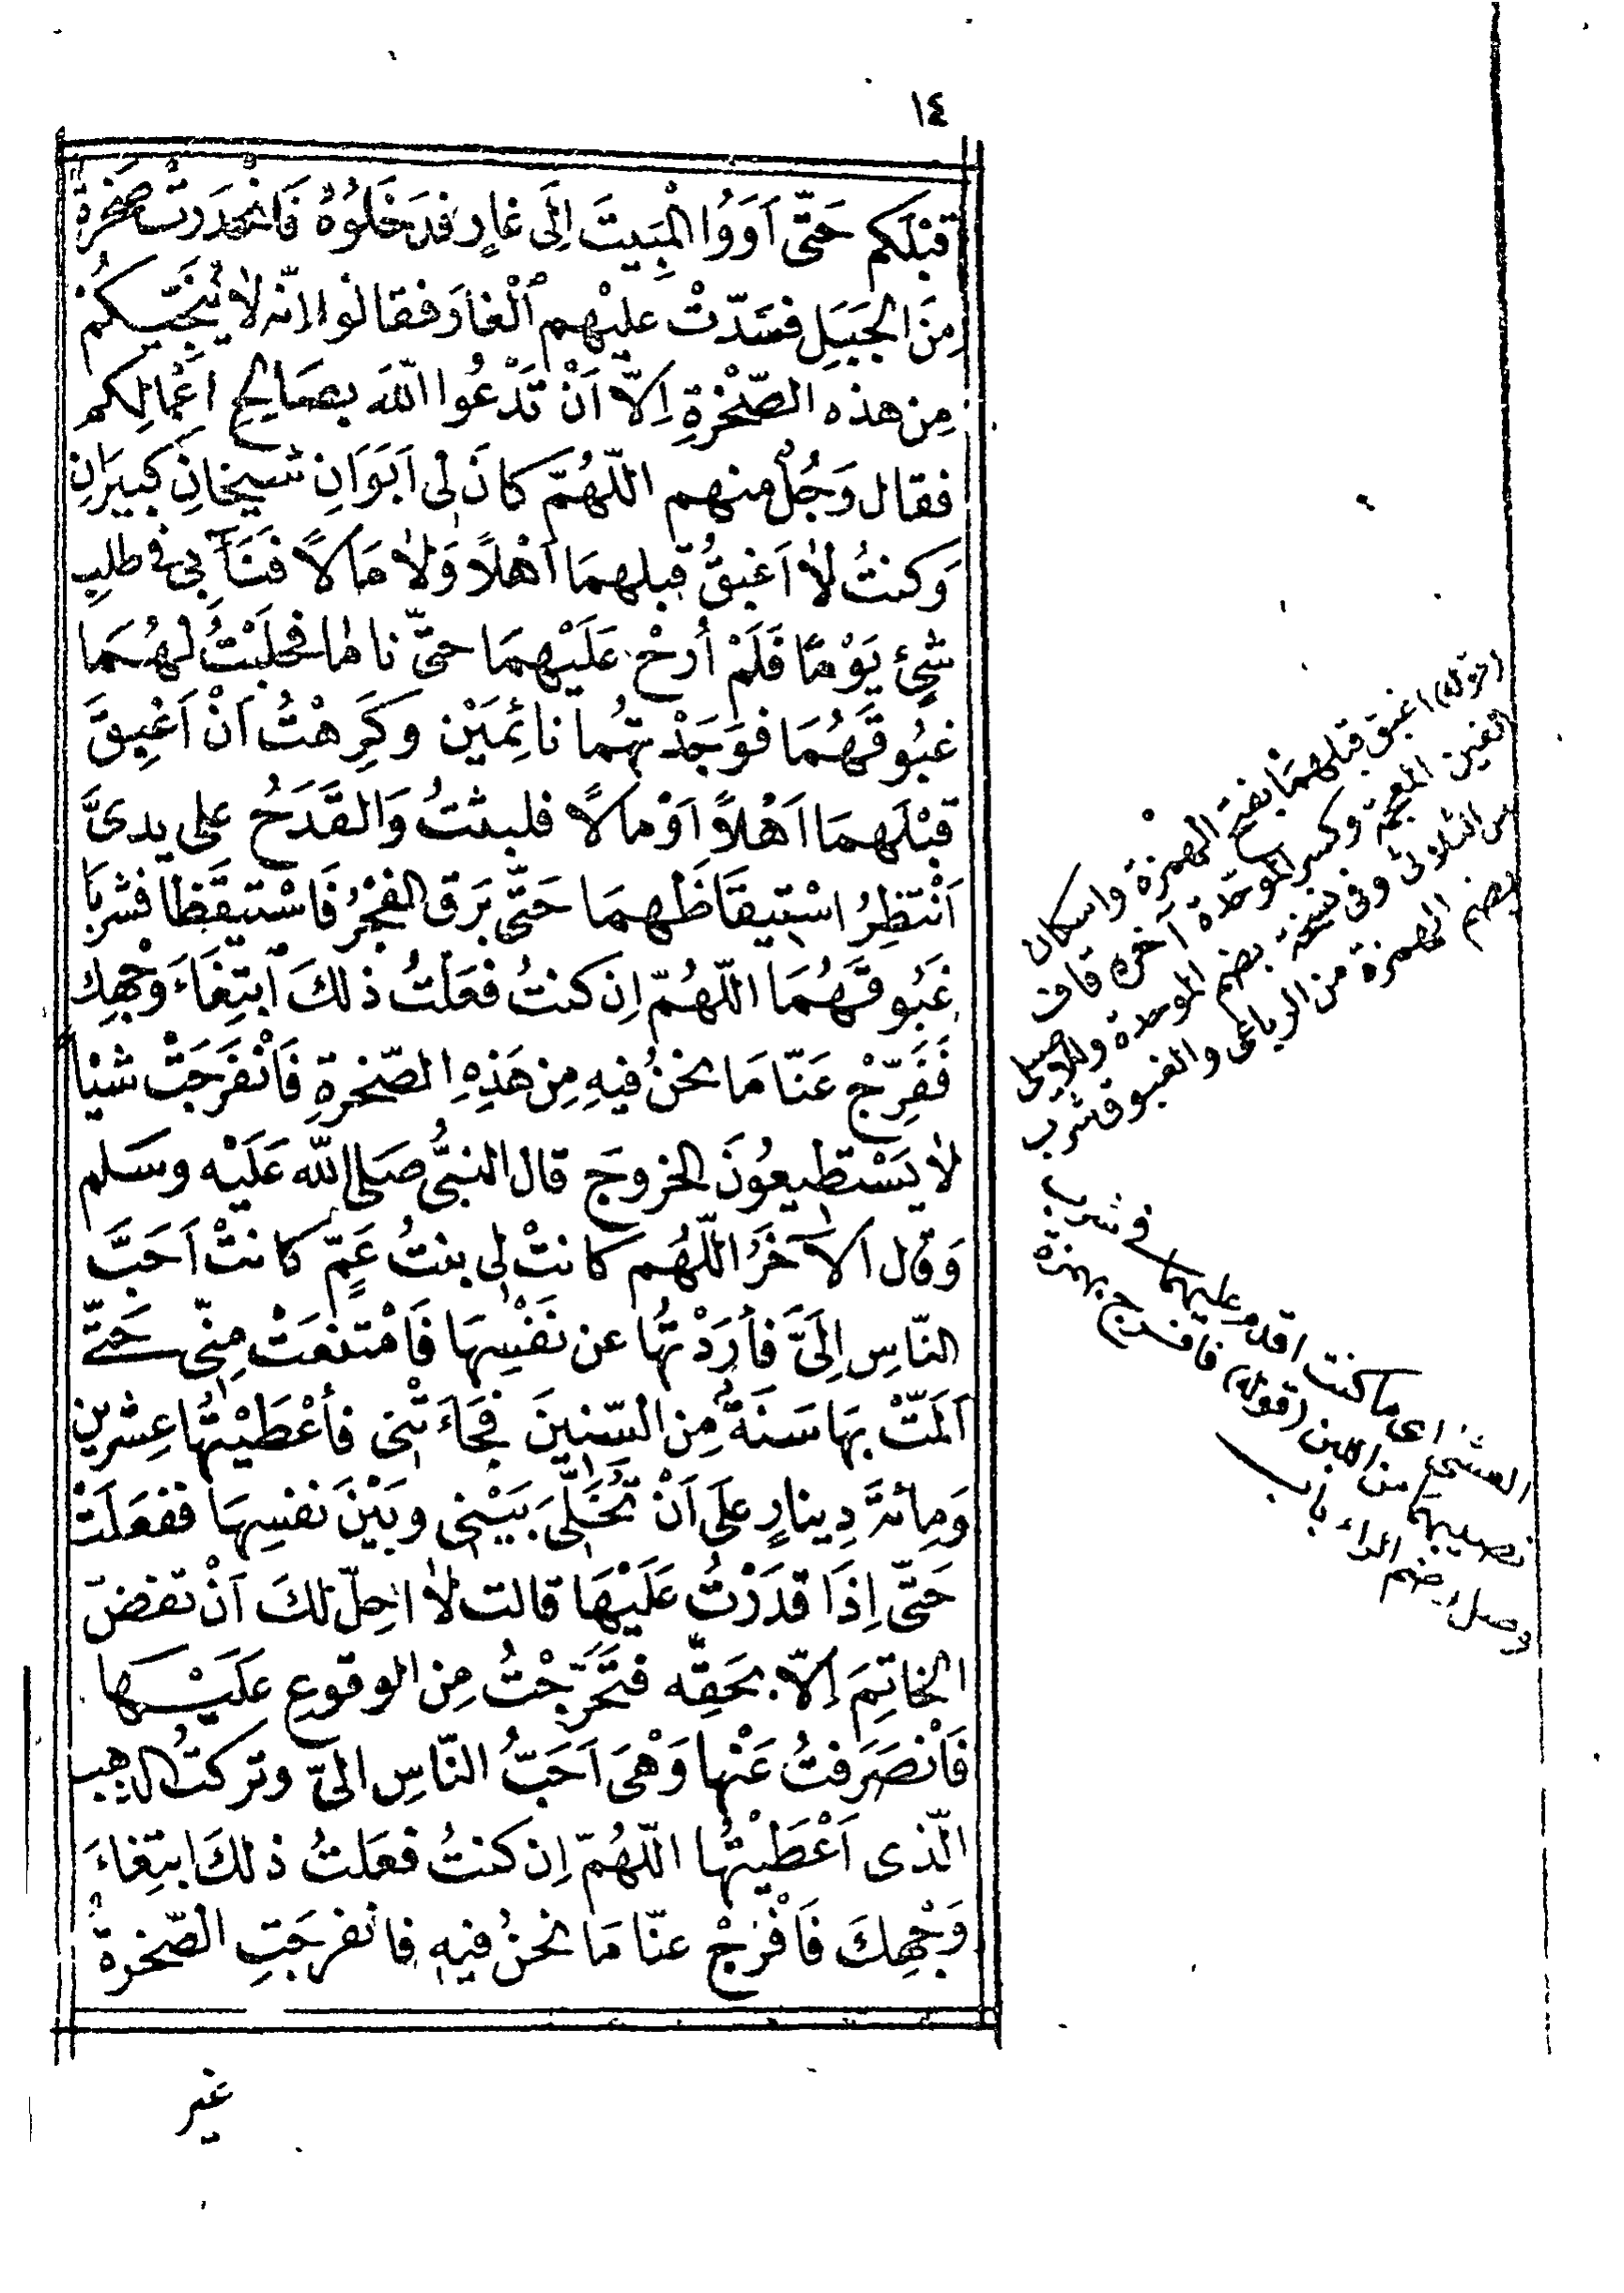 ١٤
قبْلَكم حَتّى اَوَوُا المْبَيتَ اِلَى غارٍ فدَخَلوُهُ فَانْحَدَرَتْ صَخرةٌ
مِنَ الجَبَلِ فسَدّتْ عليْهم الْغارَ فقالوا انّه لاٰ يُنَجّيكُم
مِن هذه الصّخْرةِ اِلاّ اَنْ تَدْعُوا اللهَ بصَالِحِ اعْمالِكم
فقال رَجُلٌ منهم اللّهُمّ كانَ لى اَبَوَانِ شَيخانِ كبيَرانِ
وَكنتُ لاٰ اَغبِقُ قبلهمَا اَهْلاً وَلاٰ مَالاً فَنَآَى بى فى طلبِ
شَىْءٍ يَوْمًا فَلَمْ اُرِحْ عَلَيْهمَا حتىّ ناما فحَلَبْتُ لهُمَا
غبُوقَهُمَا فوَجَدْتهُما نائِمَيْن وكَرِهْتُ اَنْ اَغْبِقَ
قبْلَهمَا اَهْلاً اَوْ مالاً فلبثتُ وَالقَدَحُ على يدىَّ
اَنْتظِرُ اسْتيقَاظَهمَا حَتّى بَرَق الفَجْرُ فَاسْتيقَظا فشربَا
غَبُوقَهُمَا اللّهُمّ اِن كنتُ فعَلتُ ذلكَ ابتِغَاءَ وَجْهِك
فَفَرِّجْ عَنّا مَا نحنُ فيهِ مِن هَذِهِ الصّخرةِ فَانْفَرَجَتْ شيئًا
لاٰ يَسْتطيعُونَ الخروجَ قال النبىُّ صَلى الله عَلَيْه وسَلم
وَقال الآخَرُ اللّهُم كانتْ لى بنتُ عَمٍّ كانتْ اَحَبَّ
النّاسِ اِلَىَّ فأرَدْتُها عن نَفْسِهَا فَامْتنعَتْ مِنّى حَتّى
اَلَمّتْ بهَا سَنَةٌ مِن السّنينَ فجَاءَتْنى فأعْطَيْتُها عِشرين
وَمِائةَ دِينارٍ علَى اَنْ تُخَلّىَ بَيْنى وبَيْنَ نفسِهَا ففعَلَتْ
حَتّى اِذَا قدَرْتُ عَلَيْهَا قالت لاٰ اُحِلّ لكَ اَنْ تفضّ
الخاتِمَ اِلاّ بحَقّه فتَحَرّجْتُ مِن الوقوعِ عَلَيْها
فَانْصَرَفتُ عَنْها وَهْىَ اَحَبُّ النّاسِ الىّ وتركتُ الذهب
الّذى اَعْطَيْتُها اللّهُمّ اِن كنتُ فعَلتُ ذلكَ ابتِغاءَ
وَجْهِكَ فَافْرُجْ عنّا مَا نحنُ فيهِ فانفرجَتِ الصّخرةُ
غير
(قوله) اغبق قبلهما بفتح الهمزة واسكان
الغين المعجمة وكسر الموحدة آخره قاف
من الثلاثى وفى نسخة بضم الموحدة وللاصيلى
بضم الهمزة من الرباعى والغبوق شرب
العشى اى ما كنت اقدم عليهما فى شرب
نصيبهما من اللبن (قوله) فافرج بهمزة
وصل وضم الراء باب